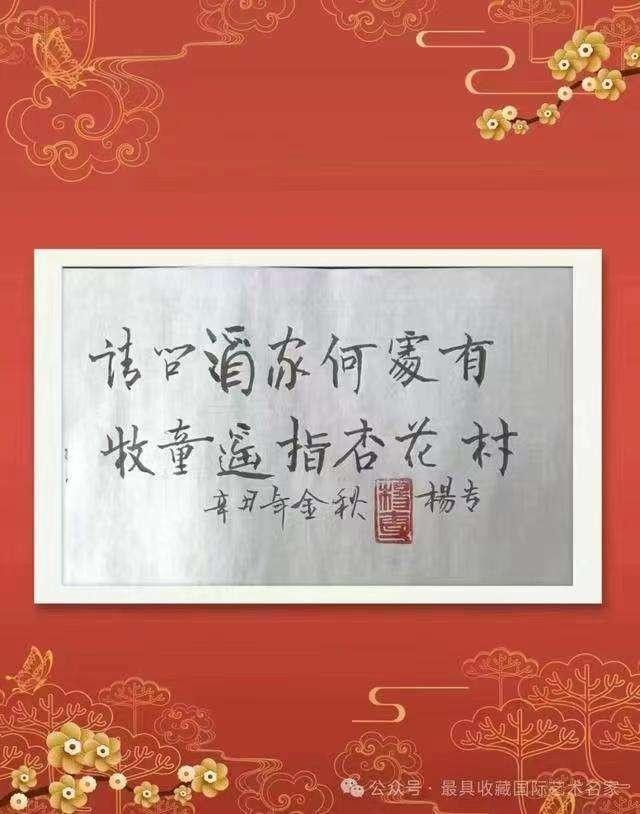 请问酒家何處有
牧童遥指杏花村
辛丑年金秋 楊专
公众号·最具收藏国际艺术名家一